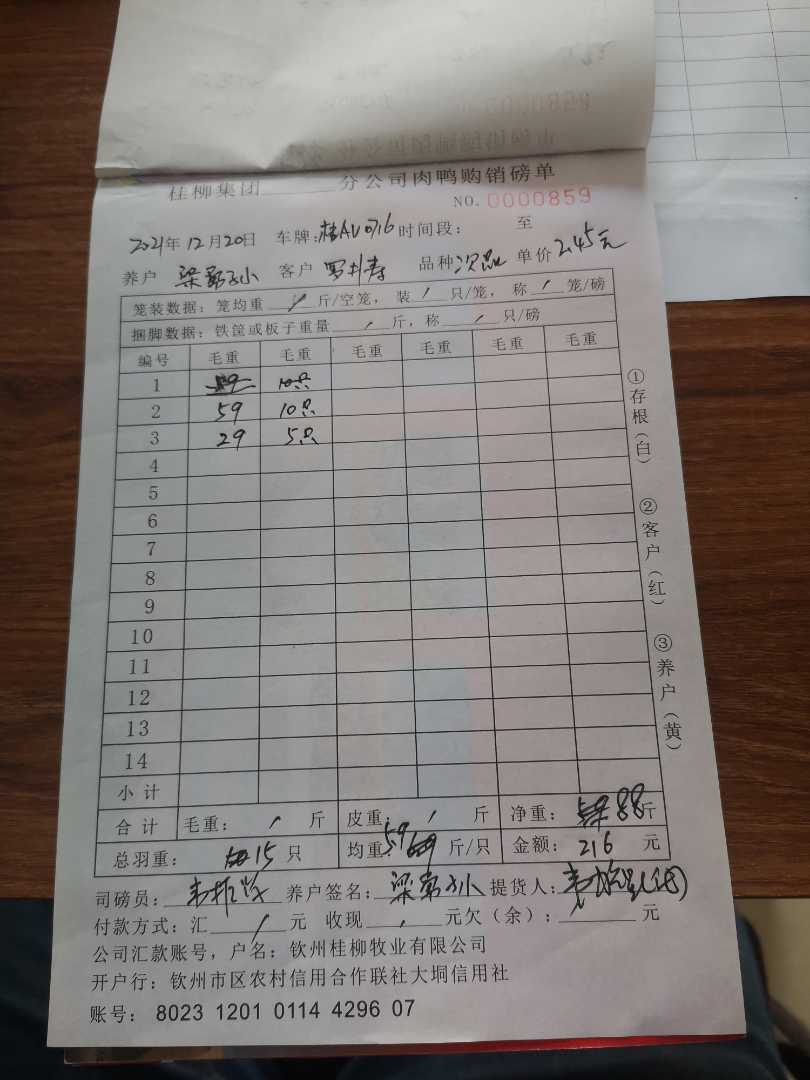 桂柳集团 分公司肉鸭购销磅单
NO. 0000859
2021年12月20日 车牌:桂AV0716 时间段: 至
养户 梁 客户 罗 品种 次品 单价 2.45元
笼装数据:笼均重 / 斤/空笼,装 / 只/笼,称 / 笼/磅
捆脚数据:铁筐或板子重量 / 斤,称 / 只/磅
编号 毛重 毛重 毛重 毛重 毛重 毛重
1 59 10只
2 59 10只
3 29 5只
4
5
6
7
8
9
10
11
12
13
14
小计
合计 毛重: / 斤 皮重: / 斤 净重: 88斤
总羽重: 15 只 均重: 59 斤/只 金额: 216 元
司磅员: 韦 养户签名: 梁 提货人: 韦
付款方式:汇 / 元 收现 / 元欠(余): 元
公司汇款账号,户名:钦州桂柳牧业有限公司
开户行:钦州市区农村信用合作联社大垌信用社
账号: 8023 1201 0114 4296 07
①存根(白)
②客户(红)
③养户(黄)